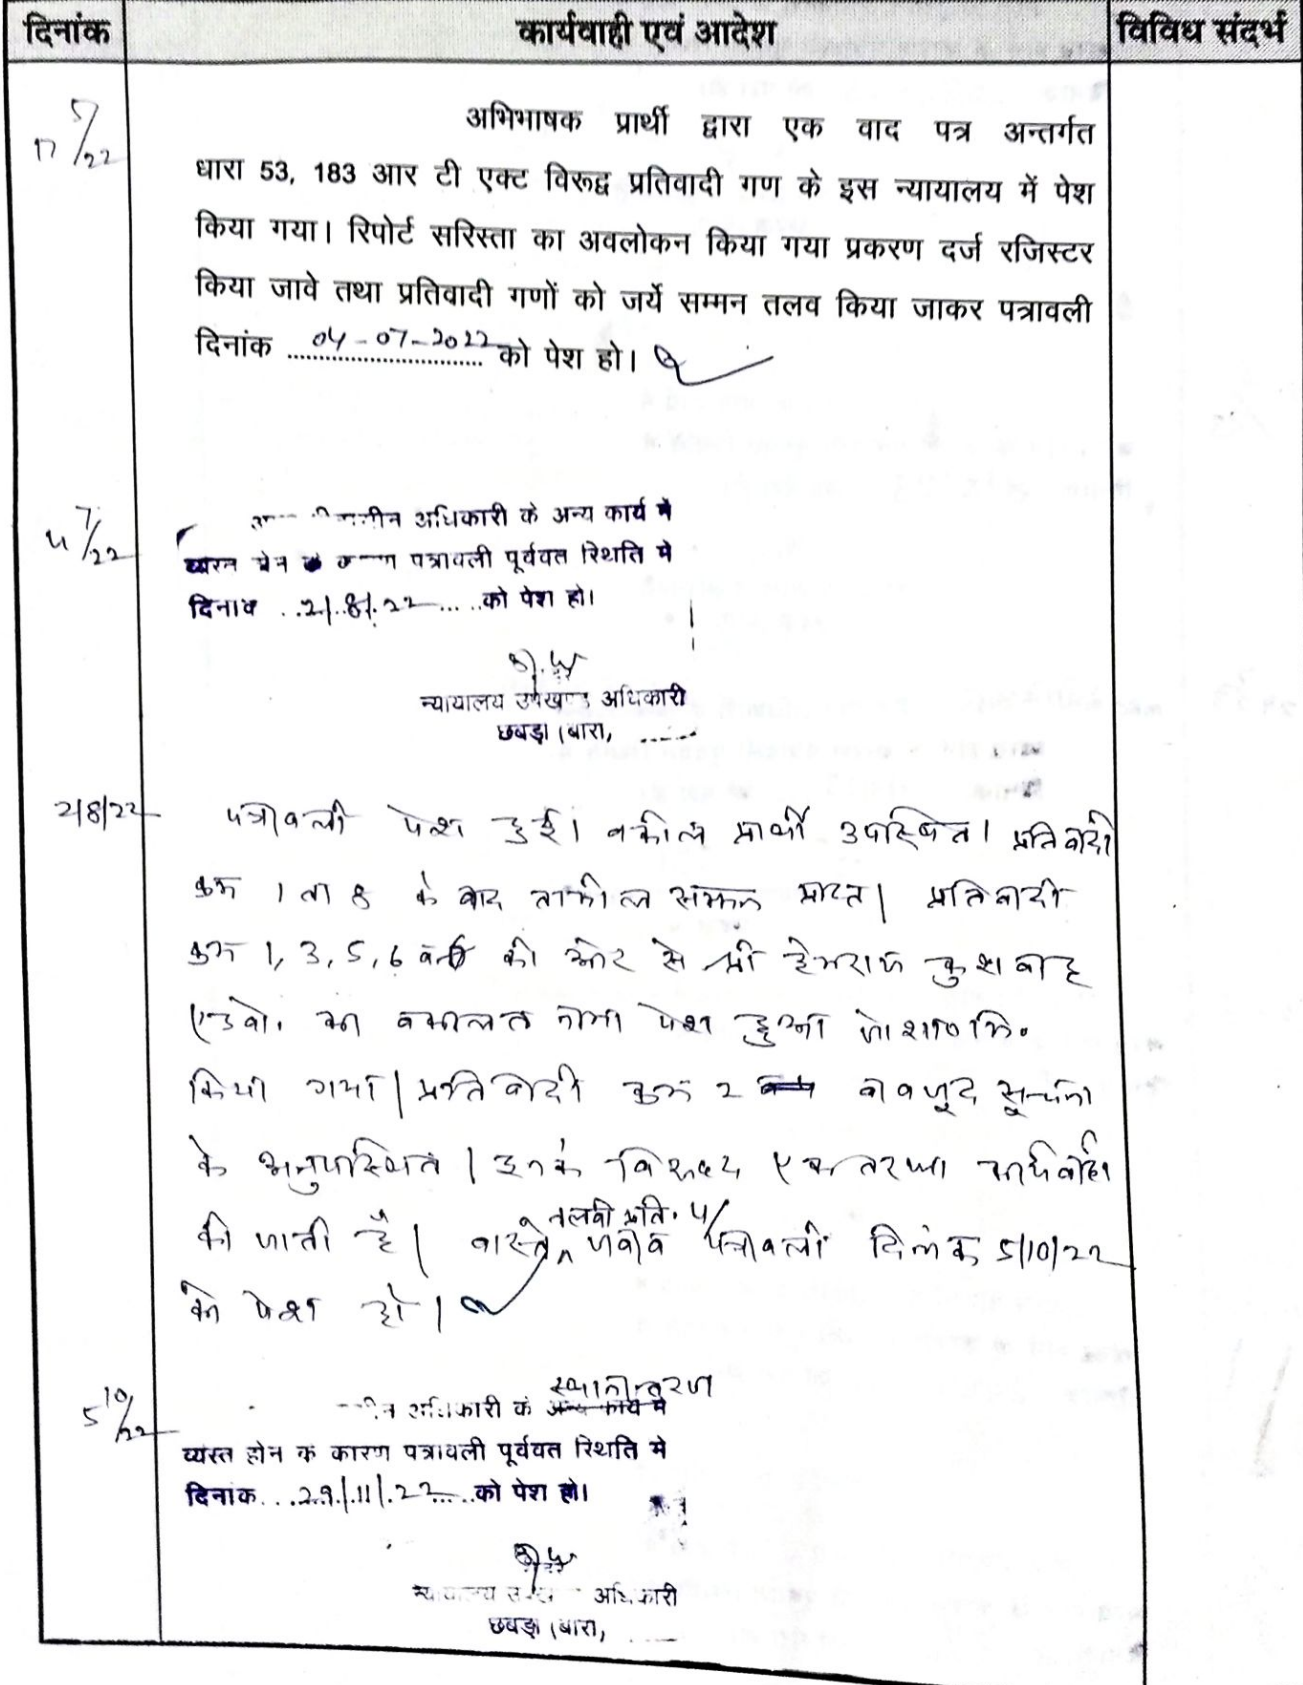 दिनांक कार्यवाही एवं आदेश विविध संदर्भ
17 5/22
अभिभाषक प्रार्थी द्वारा एक वाद पत्र अन्तर्गत
धारा 53, 183 आर टी एक्ट विरूद्व प्रतिवादी गण के इस न्यायालय में पेश
किया गया। रिपोर्ट सरिस्ता का अवलोकन किया गया प्रकरण दर्ज रजिस्टर
किया जावे तथा प्रतिवादी गणों को जर्ये सम्मन तलव किया जाकर पत्रावली
दिनांक 04-07-2022 को पेश हो।
4 7/22
अधिकारी के अन्य कार्य मे
पत्रावली पूर्ववत स्थिति मे
दिनांक 2/8/22 को पेश हो।
न्यायालय उपखण्ड अधिकारी
छबड़ा (बारा)
2/8/22 पत्रावली पेश हुई। वकील प्रार्थी उपस्थित। प्रतिवादी
क्रम 1 ता 8 के बाद तामील सम्मन प्राप्त। प्रतिवादी
क्रम 1, 3, 5, 6 की ओर से श्री हेमराज कुशवाह
एडवो. का वकालत नामा पेश हुआ
किया गया। प्रतिवादी क्रम 2 बावजूद सूचना
के अनुपस्थित। इनके विरूद्ध एक तरफा कार्यवाही
की जाती है। वास्ते तलवी प्रति. 4/ जवाब पत्रावली दिनांक 5/10/22
को पेश हो।
5 10/22
स्थानान्तरण
अधिकारी के अन्य कार्य मे
व्यस्त होन क कारण पत्रावली पूर्ववत स्थिति मे
दिनांक 29/11/22 को पेश हो।
अधिकारी
छबड़ा (बारा)